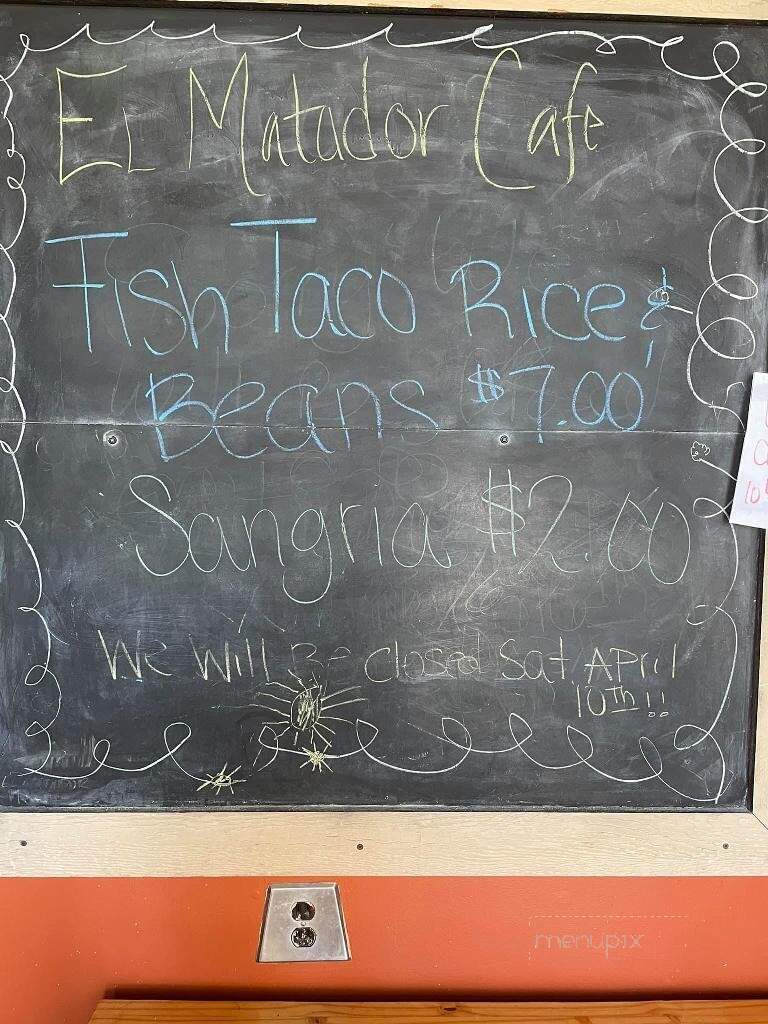 El Matador Cafe
Fish Taco Rice &
Beans $7.00
Sangria $2.00
We Will Be Closed Sat. April
10th!!
menupix